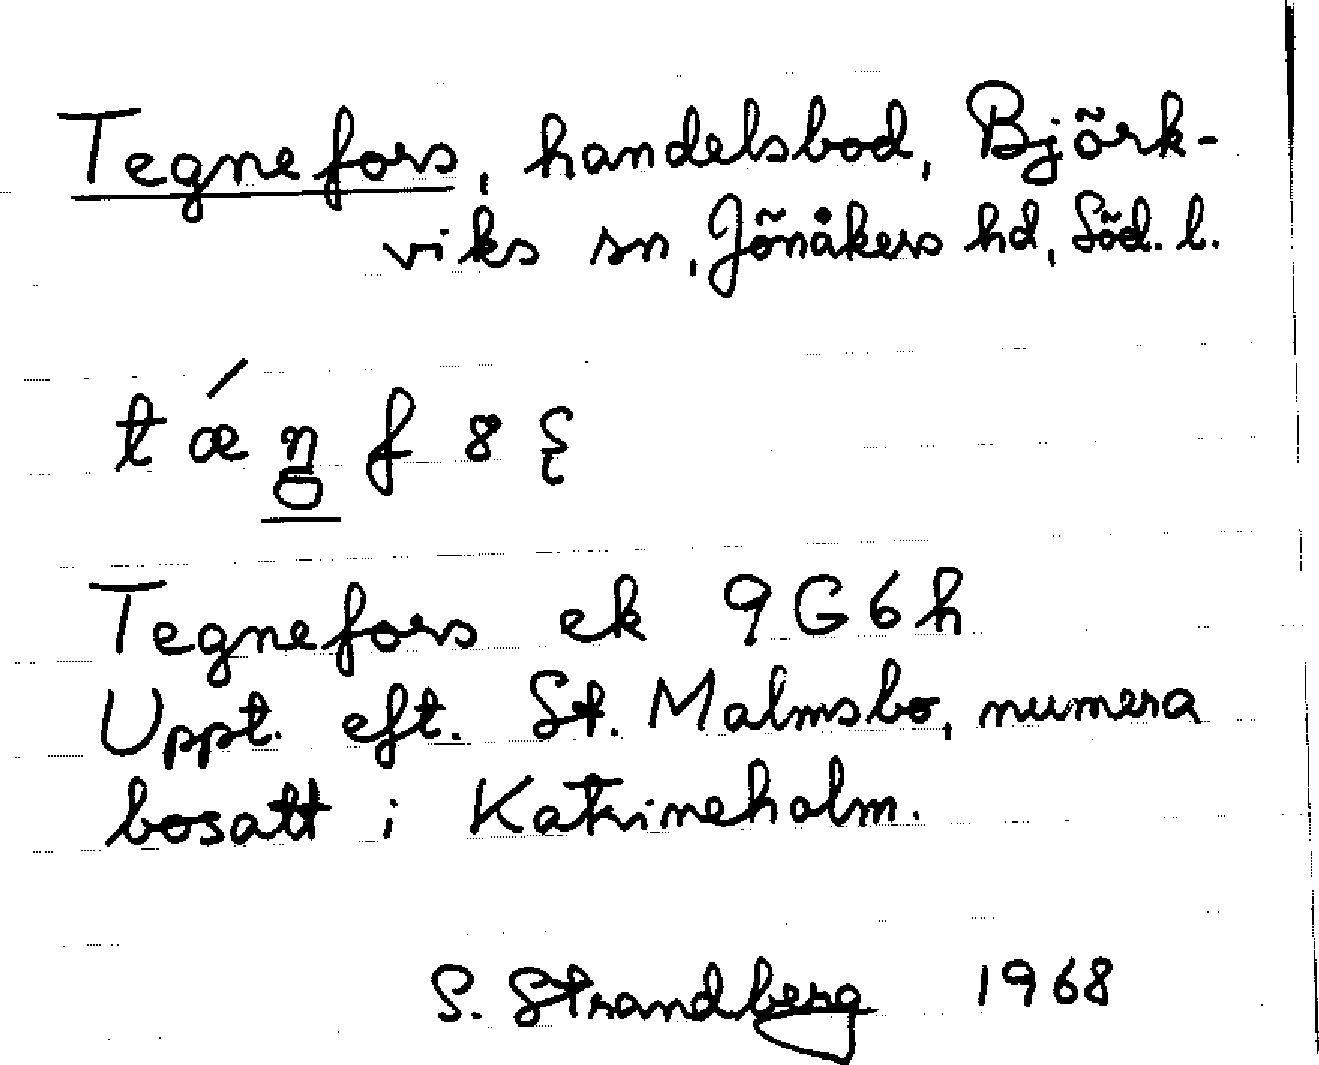 Tegnefors, handelsbod, Björk-
viks sn, Jönåkers hd, Söd. l.
tǽŋ̥f8ꞩ
Tegnefors ek 9G6h
Uppt. eft. St. Malmsbo, numera
bosatt i Katrineholm.
S. Strandberg 1968